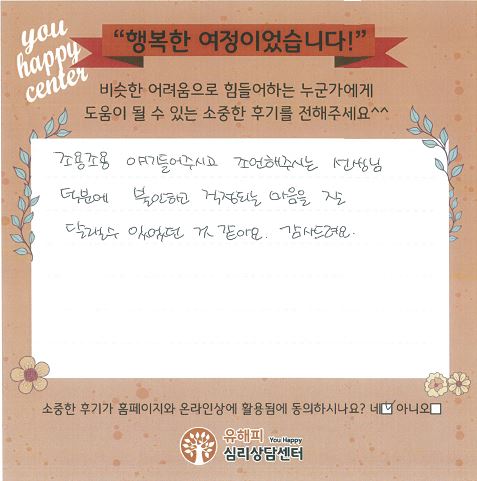 you
happy
center
“행복한 여정이었습니다!”
비슷한 어려움으로 힘들어하는 누군가에게
도움이 될 수 있는 소중한 후기를 전해주세요^^
조용조용 얘기들어주시고 조언해주시는 선생님
덕분에 불안하고 걱정되는 마음을 잘
달랠수 있었던 것 같아요. 감사드려요.
소중한 후기가 홈페이지와 온라인상에 활용됨에 동의하시나요? 네☑ 아니오☐
유해피 You Happy
심리상담센터